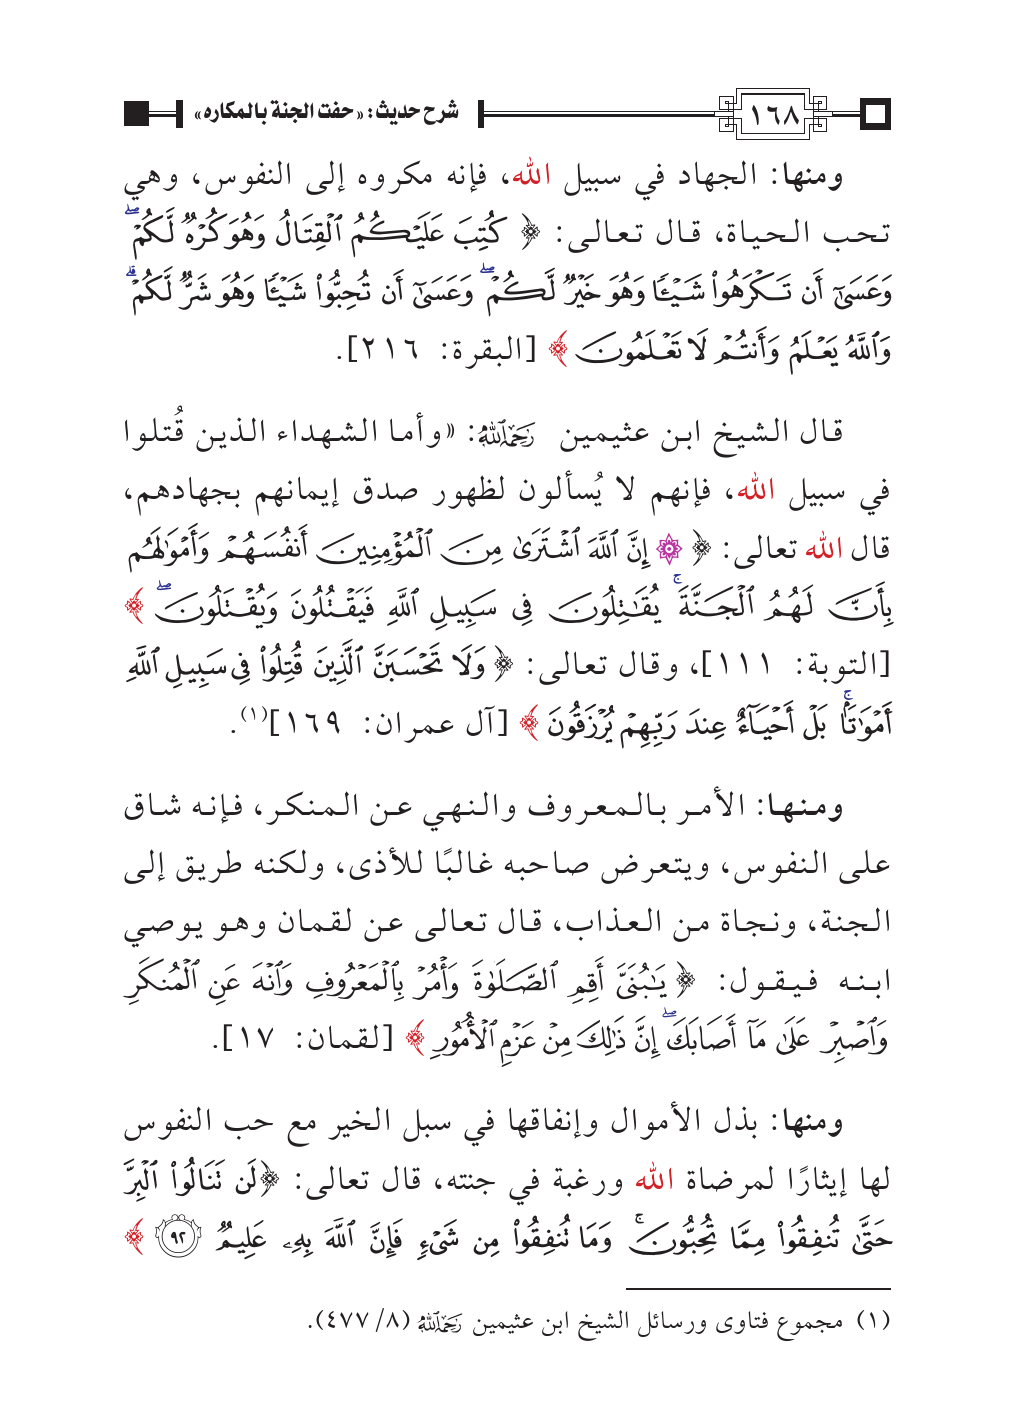 ١٦٨ شرح حديث: «حفت الجنة بالمكاره»
ومنها: الجهاد في سبيل الله، فإنه مكروه إلى النفوس، وهي
تحب الحياة، قال تعالى: ﴿كُتِبَ عَلَيْكُمُ ٱلْقِتَالُ وَهُوَ كُرْهٌ لَّكُمْ ۖ
وَعَسَىٰٓ أَن تَكْرَهُوا۟ شَيْـًٔا وَهُوَ خَيْرٌ لَّكُمْ ۖ وَعَسَىٰٓ أَن تُحِبُّوا۟ شَيْـًٔا وَهُوَ شَرٌّ لَّكُمْ ۗ
وَٱللَّهُ يَعْلَمُ وَأَنتُمْ لَا تَعْلَمُونَ﴾ [البقرة: ٢١٦].
قال الشيخ ابن عثيمين رَحِمَهُ ٱللَّهُ: «وأما الشهداء الذين قُتلوا
في سبيل الله، فإنهم لا يُسألون لظهور صدق إيمانهم بجهادهم،
قال الله تعالى: ﴿۞ إِنَّ ٱللَّهَ ٱشْتَرَىٰ مِنَ ٱلْمُؤْمِنِينَ أَنفُسَهُمْ وَأَمْوَٰلَهُم
بِأَنَّ لَهُمُ ٱلْجَنَّةَ ۚ يُقَـٰتِلُونَ فِى سَبِيلِ ٱللَّهِ فَيَقْتُلُونَ وَيُقْتَلُونَ ۖ﴾
[التوبة: ١١١]، وقال تعالى: ﴿وَلَا تَحْسَبَنَّ ٱلَّذِينَ قُتِلُوا۟ فِى سَبِيلِ ٱللَّهِ
أَمْوَٰتًۢا ۚ بَلْ أَحْيَآءٌ عِندَ رَبِّهِمْ يُرْزَقُونَ﴾ [آل عمران: ١٦٩](١).
ومنها: الأمر بالمعروف والنهي عن المنكر، فإنه شاق
على النفوس، ويتعرض صاحبه غالبًا للأذى، ولكنه طريق إلى
الجنة، ونجاة من العذاب، قال تعالى عن لقمان وهو يوصي
ابنه فيقول: ﴿يَـٰبُنَىَّ أَقِمِ ٱلصَّلَوٰةَ وَأْمُرْ بِٱلْمَعْرُوفِ وَٱنْهَ عَنِ ٱلْمُنكَرِ
وَٱصْبِرْ عَلَىٰ مَآ أَصَابَكَ ۖ إِنَّ ذَٰلِكَ مِنْ عَزْمِ ٱلْأُمُورِ﴾ [لقمان: ١٧].
ومنها: بذل الأموال وإنفاقها في سبل الخير مع حب النفوس
لها إيثارًا لمرضاة الله ورغبة في جنته، قال تعالى: ﴿لَن تَنَالُوا۟ ٱلْبِرَّ
حَتَّىٰ تُنفِقُوا۟ مِمَّا تُحِبُّونَ ۚ وَمَا تُنفِقُوا۟ مِن شَىْءٍ فَإِنَّ ٱللَّهَ بِهِۦ عَلِيمٌ ٩٢﴾
(١) مجموع فتاوى ورسائل الشيخ ابن عثيمين رَحِمَهُ ٱللَّهُ (٨/ ٤٧٧).